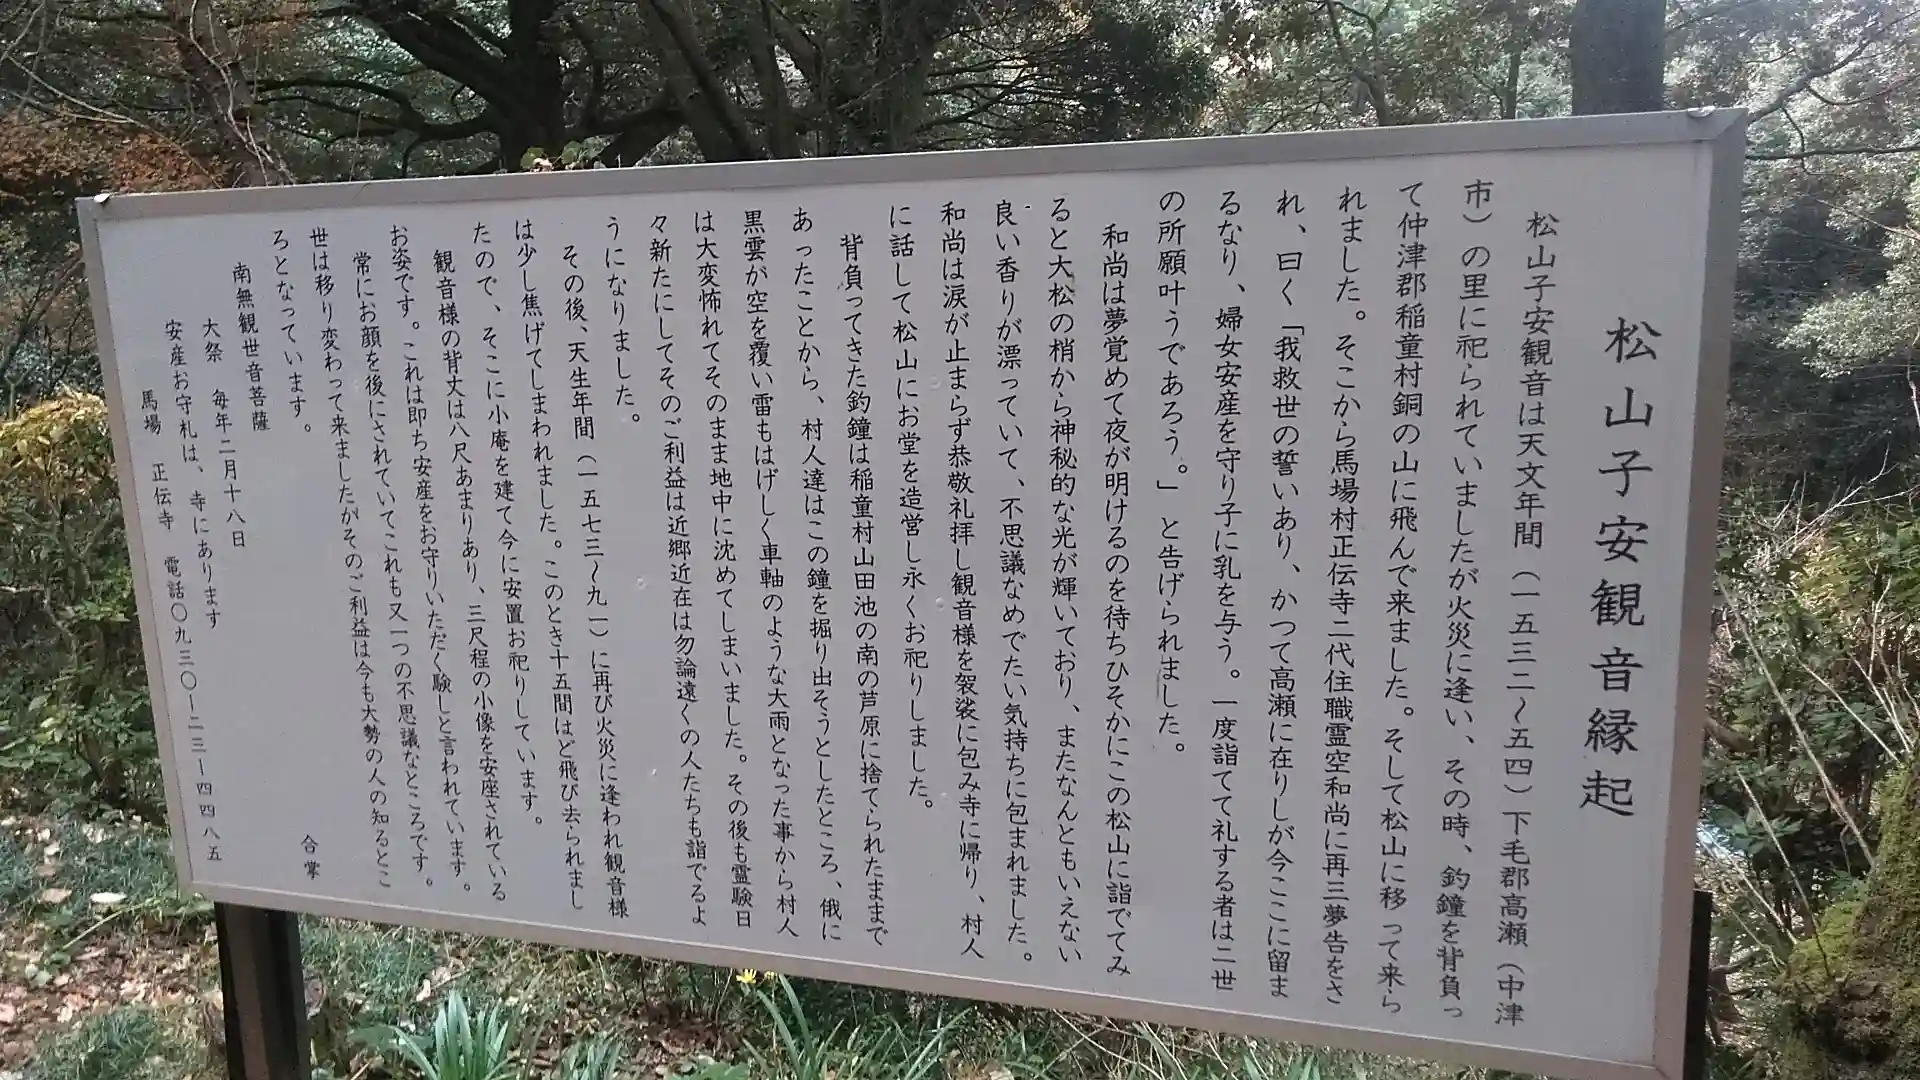 松山子安観音縁起
松山子安観音は天文年間（一五三二〜五四）下毛郡高瀬（中津
市）の里に祀られていましたが火災に逢い、その時、釣鐘を背負っ
て仲津郡稲童村銅の山に飛んで来ました。そして松山に移って来ら
れました。そこから馬場村正伝寺二代住職霊空和尚に再三夢告をさ
れ、曰く「我救世の誓いあり、かつて高瀬に在りしが今ここに留ま
るなり、婦女安産を守り子に乳を与う。一度詣てて礼する者は二世
の所願叶うであろう。」と告げられました。
和尚は夢覚めて夜が明けるのを待ちひそかにこの松山に詣でてみ
ると大松の梢から神秘的な光が輝いており、またなんともいえない
良い香りが漂っていて、不思議なめでたい気持ちに包まれました。
和尚は涙が止まらず恭敬礼拝し観音様を袈裟に包み寺に帰り、村人
に話して松山にお堂を造営し永くお祀りしました。
背負ってきた釣鐘は稲童村山田池の南の芦原に捨てられたままで
あったことから、村人達はこの鐘を掘り出そうとしたところ、俄に
黒雲が空を覆い雷もはげしく車軸のような大雨となった事から村人
は大変怖れてそのまま地中に沈めてしまいました。その後も霊験日
々新たにしてそのご利益は近郷近在は勿論遠くの人たちも詣でるよ
うになりました。
その後、天生年間（一五七三〜九一）に再び火災に逢われ観音様
は少し焦げてしまわれました。このとき十五間ほど飛び去られまし
たので、そこに小庵を建て今に安置お祀りしています。
観音様の背丈は八尺あまりあり、三尺程の小像を安座されている
お姿です。これは即ち安産をお守りいただく験しと言われています。
常にお顔を後にされていてこれも又一つの不思議なところです。
世は移り変わって来ましたがそのご利益は今も大勢の人の知るとこ
ろとなっています。
合掌
南無観世音菩薩
大祭　毎年二月十八日
安産お守札は、寺にあります
馬場　正伝寺　電話〇九三〇ー二三ー四四八五